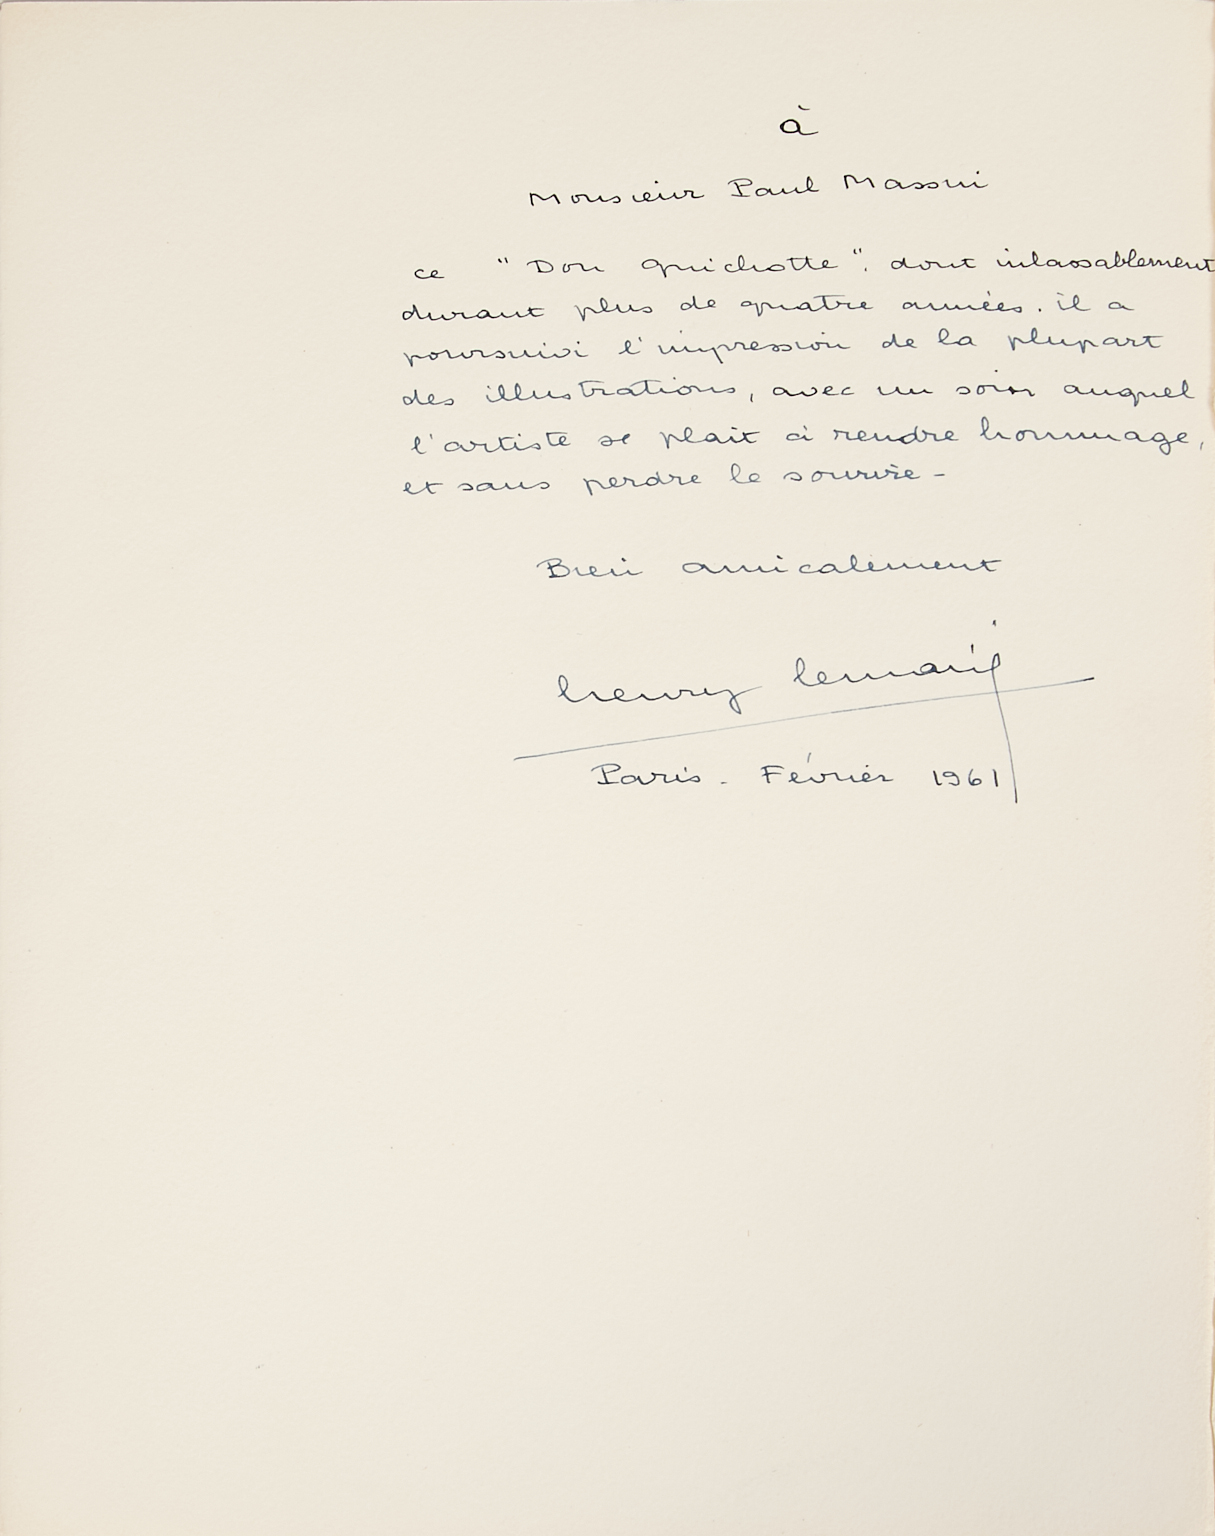 à
Monsieur Paul Massui
ce "Don Quichotte". dont inlassablement
durant plus de quatre années. il a
poursuivi l'impression de la plupart
des illustrations, avec un soin auquel
l'artiste se plait à rendre hommage,
et sans perdre le sourire -
Bien amicalement
henry lemarié
Paris - Février 1961